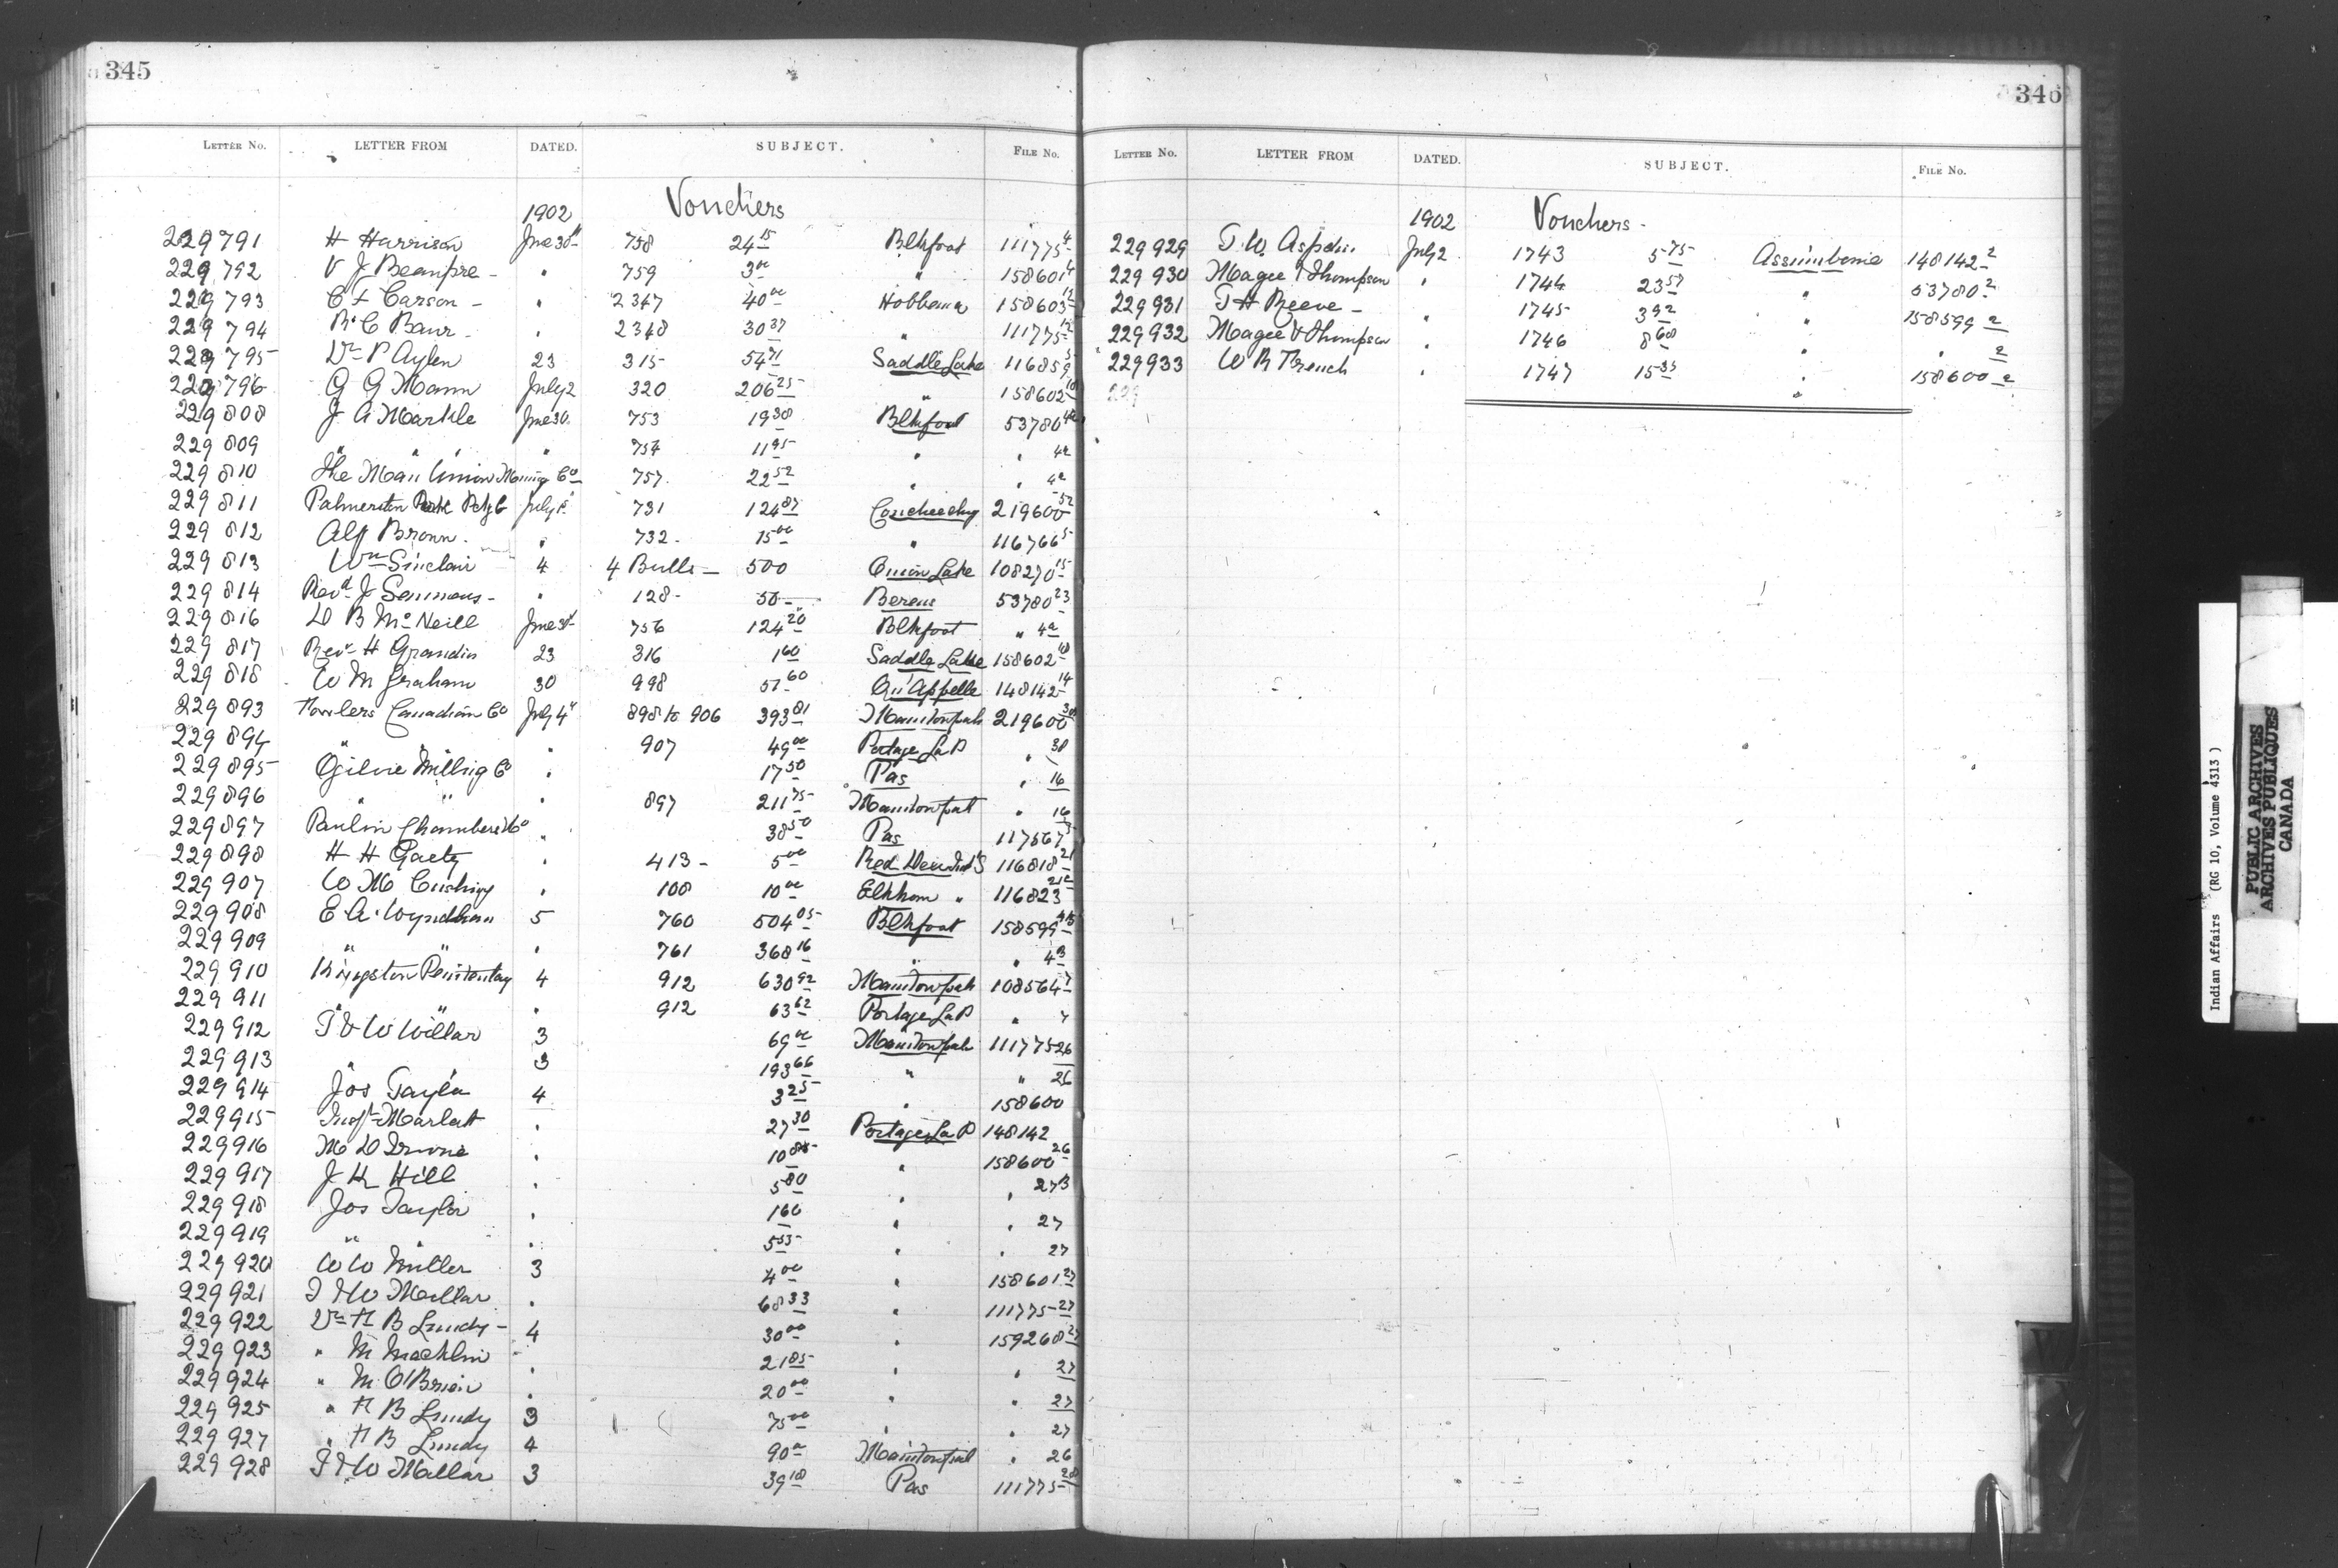 345
LETTER No. LETTER FROM DATED. SUBJECT. FILE No.
1902 Vouchers
229791 H Harrison June 30th 758 24 15 Blkfoot 111775 4
229792 V J Beaupre - " 759 3 00 " 158601 4
229793 C F Carson - " 2347 40 00 Hobbema 158603 12
229794 R. C Baur - " 2348 30 37 " 111775 12
229795 Dr P Aylen 23 315 54 71 Saddle Lake 116859 5
229796 G G Mann July 2 320 206 25 " 158602 10
229808 J A Markle June 30 753 19 38 Blkfoot 53780 4a
229809 " " " 754 11 95 " " 4a
229810 The Man Union Co 757 22 52 " " 4a
229811 Palmerston Pork Pckg C July 1st 731 124 87 219600 52
229812 Alf Brown. " 732 - 15 00 " 116766 5
229813 Wm Sinclair 4 4 Bulls - 500 Onion Lake 108270 15
229814 Revd J Semmens - " 128 - 50 - Berens 53780 23
229816 D B McNeill June 30 756 124 20 Blkfoot " 4a
229817 Revd H Grandin 23 316 1 60 Saddle Lake 158602 10
229818 W M Graham 30 998 57 60 Qu'Appelle 148142 14
229893 Fowlers Canadian Co July 4" 898 to 906 393 81 Manitowpah 219600 38
229894 " " 907 49 00 Portage La P " 38
229895 Ogilvie Milling Co " 17 50 Pas " 16
229896 " " " 897 211 75 Manitowpah " 16
229897 Paulin Chambers & Co " 38 50 Pas 117567
229898 H H Gaetz " 413 - 5 00 Red Deer Ind'l S 116818 21
229907 W M Cushing " 108 10 00 Elkhorn " 116823
229908 E A. Wyndham 5 760 504 05 Blkfoot 158599
229909 " " " 761 368 16 " "
229910 Kingston Penitentiary 4 912 630 92 Manitowpah 108564 7
229911 " " " 912 63 62 Portage La P " 7
229912 T & W Millar 3 69 00 Manitowpah 111775 26
229913 " 3 193 66 " " 26
229914 Jos Taylor 4 3 25 " 158600
229915 Insp. Marlatt " 27 30 Portage La P 148142
229916 M D Irvine " 10 85 " 158600 26
229917 J K Hill " 5 80 " " 27B
229918 Jos Taylor " 1 60 " " 27
229919 " " " 5 53 " " 27
229920 W W Miller 3 4 00 " 158601 27
229921 T & W Millar " 68 33 " 111775 27
229922 Dr H B Lundy - 4 30 00 " 159268 27
229923 " M Macklin " 21 85 " " 27
229924 " M O'Brien " 20 00 " " 27
229925 " H B Lundy 3 75 00 " " 27
229927 " H B Lundy 4 90 00 Manitowpah " 26
229928 T & W Millar 3 39 18 Pas 111775 28
346
LETTER No. LETTER FROM DATED. SUBJECT. FILE No.
1902 Vouchers -
229929 T. W. Aspdin. July 2 1743 5 75 Assiniboine 148142 2
229930 Magee & Thompson " 1744 23 57 " 53780 2
229931 T H Reeve - " 1745 3 92 " 158599 2
229932 Magee & Thompson " 1746 8 60 " " 2
229933 W R French " 1747 15 35 " 158600 2
229
Indian Affairs (RG 10, Volume 4313)
PUBLIC ARCHIVES
ARCHIVES PUBLIQUES
CANADA